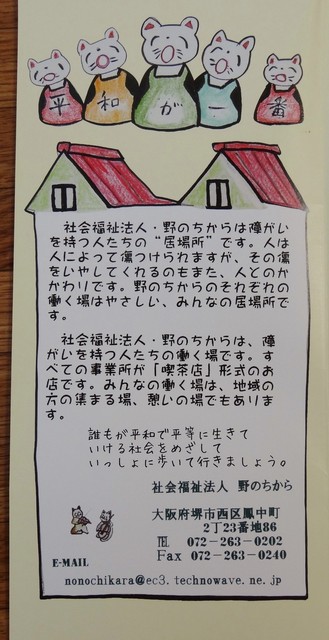 平和が一番
社会福祉法人・野のちからは障がい
を持つ人たちの“居場所”です。人は
人によって傷つけられますが、その傷
をいやしてくれるのもまた、人とのか
かわりです。野のちからのそれぞれの
働く場はやさしい、みんなの居場所で
す。
社会福祉法人・野のちからは、障
がいを持つ人たちの働く場です。す
べての事業所が「喫茶店」形式のお
店です。みんなの働く場は、地域の
方の集まる場、憩いの場でもありま
す。
誰もが平和で平等に生きて
いける社会をめざして
いっしょに歩いて行きましょう。
社会福祉法人 野のちから
大阪府堺市西区鳳中町
2丁23番地86
℡ 072-263-0202
Fax 072-263-0240
E-MAIL
nonochikara@ec3.technowave.ne.jp